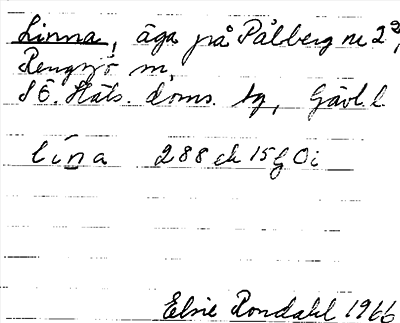 Linna, äga på Pålberg nr 2²,
Rengsjö sn,
SÖ. Häls. doms. tg, Gävl. l
lina 288 ek 15 G Oi
Elsie Rondahl 1966